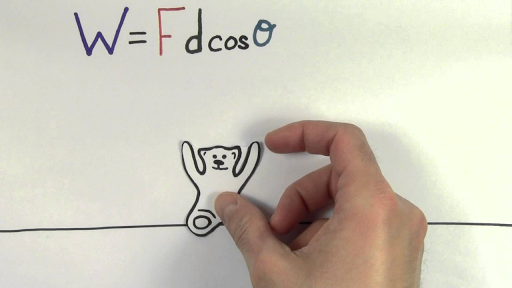 W = Fdcosθ